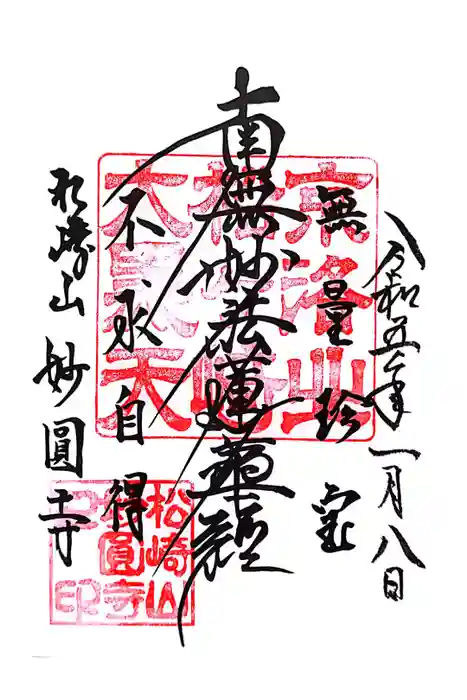 令和五年一月八日
無量珍宝
南無妙法蓮華経
不求自得
松崎山 妙圓寺
大黒天
松崎山
妙圓寺
之印